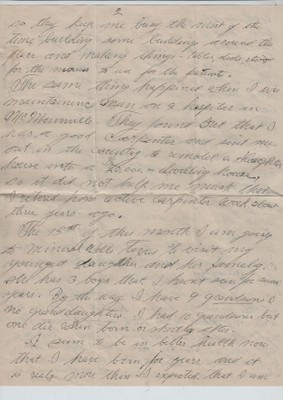 2
so they keep me busy the most of the
time building some building around the
place and making things - tables, desks
for the to use for the patients.
The same thing happened when I was
maintainence man on a hospital in
McMinnville. They found out that I
was a good Carpenter and sent me
out in the country to remodel a
house into a dwelling house,
so it did not help me much that
I retired from active carpenter work about
three years ago.
The 15th of this month I am going
to Mineral Wells Texas to visit my
youngest daughter and her family.
She has 3 boys that I havent seen for some
years. By the way I have 9 grandsons &
no granddaughters. I had 10 grandsons but
one died when born or shortly after.
I seem to be in better health now
that I have been for years and it
is realy more than I expected, that I am